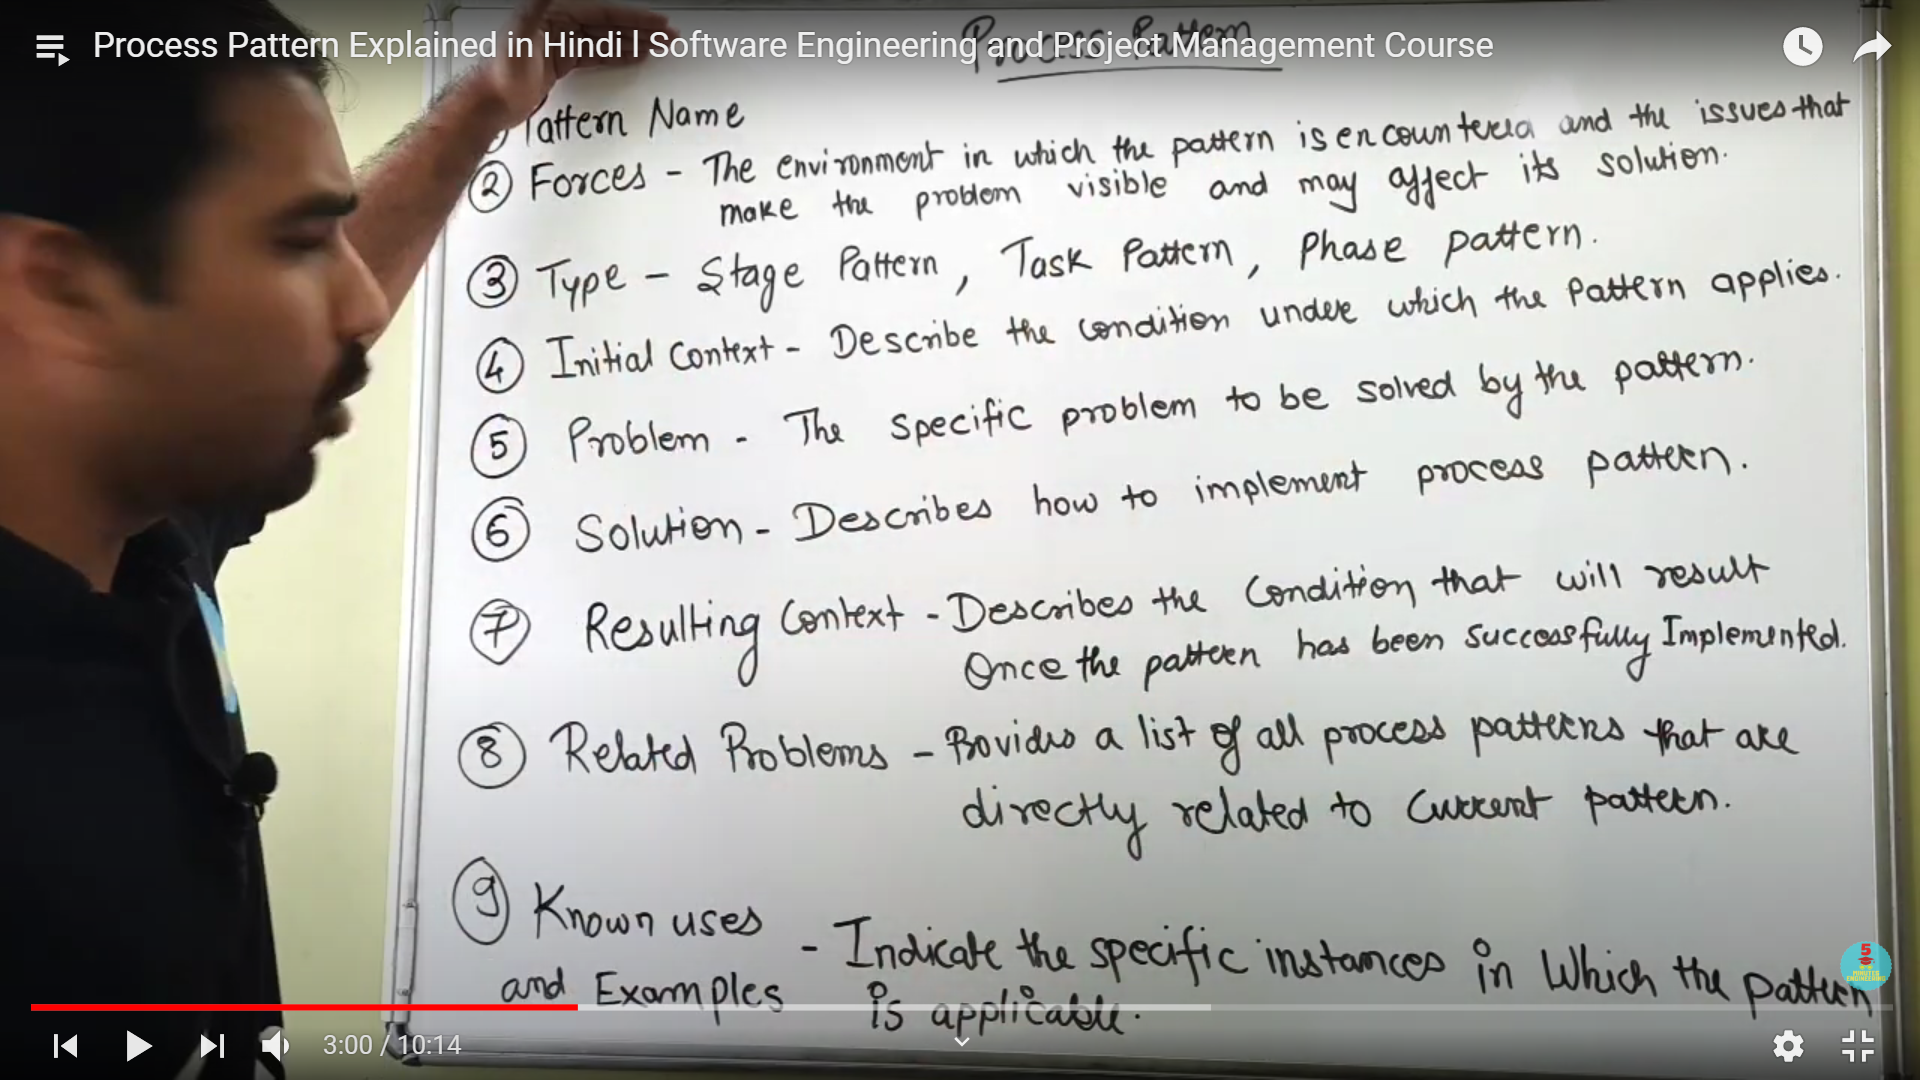 Process Pattern Explained in Hindi l Software Engineering and Project Management Course
Process Pattern
Pattern Name
2 Forces - The environment in which the pattern is encountered and the issues that
make the problem visible and may affect its solution.
3 Type - Stage Pattern, Task Pattern, Phase pattern.
4 Initial Context - Describe the condition under which the Pattern applies.
5 Problem - The specific problem to be solved by the pattern.
6 Solution - Describes how to implement process pattern.
7 Resulting Context - Describes the Condition that will result
Once the pattern has been successfully Implemented.
8 Related Problems - Provides a list of all process patterns that are
directly related to Current pattern.
9 Known uses
and Examples - Indicate the specific instances in Which the pattern
is applicable.
5
MINUTES
ENGINEERING
3:00 / 10:14